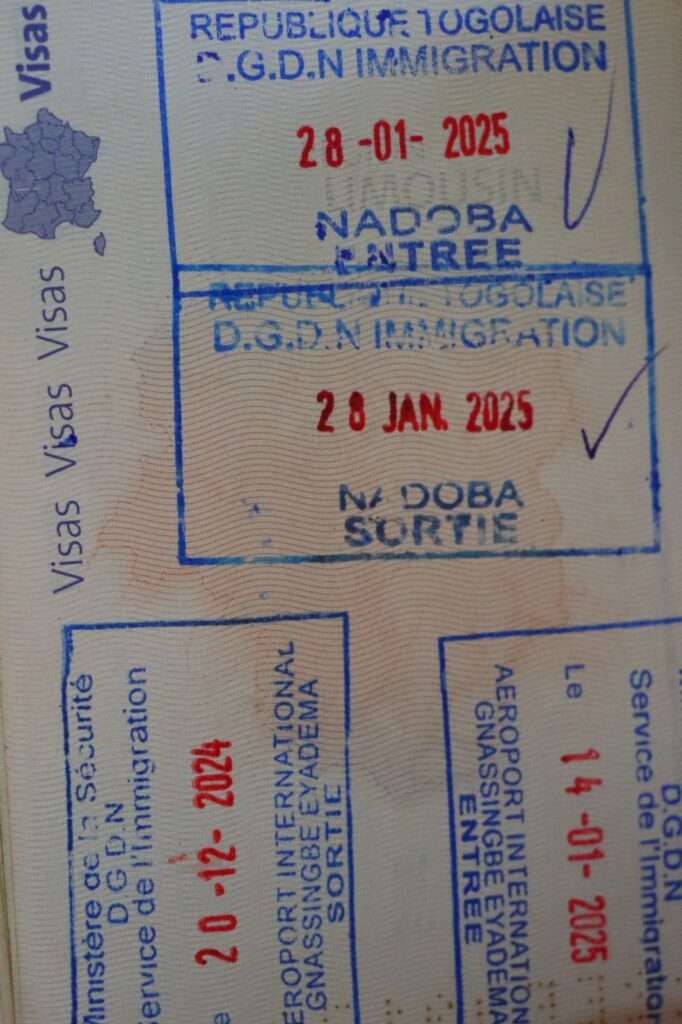 Visas
Visas
Visas
Visas
REPUBLIQUE TOGOLAISE
D.G.D.N IMMIGRATION
28-01-2025
LIMOUSIN
NADOBA
ENTREE
REPUBLIQUE TOGOLAISE
D.G.D.N IMMIGRATION
28 JAN. 2025
NADOBA
SORTIE
Ministère de la Sécurité
D G D N
Service de l'Immigration
20-12-2024
AEROPORT INTERNATIONAL
GNASSINGBE EYADEMA
SORTIE
D.G.D.N
Service de l'Immigration
Le
14-01-2025
AEROPORT INTERNATION
GNASSINGBE EYADEMA
ENTREE